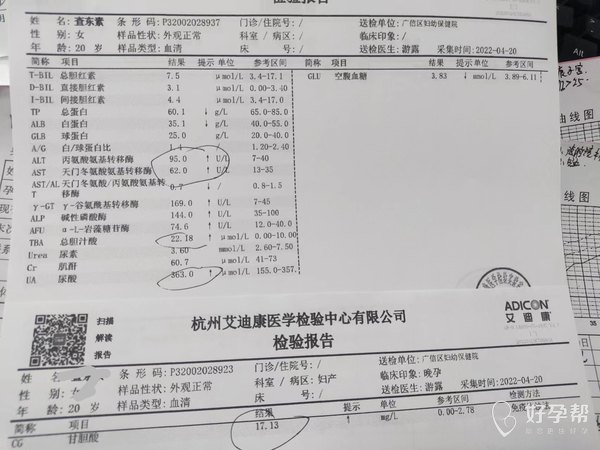 检验报告
姓 名: 查东素 条 形 码: P32002028937 门诊/住院号: / 送检单位: 广信区妇幼保健院
性 别: 女 样品性状: 外观正常 科室 / 病区: / 临床印象: /
年 龄: 20 岁 样品类型: 血清 床 号: / 送检医生: 游露 采集时间: 2022-04-20
简称 项目 结果 提示 单位 参考区间 简称 项目 结果 提示 单位 参考区间
T-BIL 总胆红素 7.5 μmol/L 3.4-17.1 GLU 空腹血糖 3.83 ↓ mmol/L 3.89-6.11
D-BIL 直接胆红素 3.1 μmol/L 0.00-3.40
I-BIL 间接胆红素 4.4 μmol/L 3.4-17.1
TP 总蛋白 60.1 ↓ g/L 65.0-85.0
ALB 白蛋白 35.1 ↓ g/L 40.0-55.0
GLB 球蛋白 25.0 g/L 20.0-40.0
A/G 白/球蛋白比 1.4 1.20-2.40
ALT 丙氨酸氨基转移酶 95.0 ↑ U/L 7-40
AST 天门冬氨酸氨基转移酶 62.0 ↑ U/L 13-35
AST/AL 天门冬氨酸/丙氨酸氨基转 0.7 ↓ / 0.8-1.5
T 移酶
γ-GT γ-谷氨酰基转移酶 169.0 ↑ U/L 7-45
ALP 碱性磷酸酶 144.0 ↑ U/L 35-100
AFU α-L-岩藻糖苷酶 74.6 ↑ U/L 12.0-40.0
TBA 总胆汁酸 22.18 ↑ μmol/L 0.00-10.00
Urea 尿素 3.60 mmol/L 2.60-7.50
Cr 肌酐 60.7 μmol/L 41-73
UA 尿酸 363.0 ↑ μmol/L 155.0-357.
扫描
解读
报告
杭州艾迪康医学检验中心有限公司
检验报告
ADICON
艾迪康
姓 名: 条 形 码: P32002028923 门诊/住院号: / 送检单位: 广信区妇幼保健院
性 别: 女 样品性状: 外观正常 科室 / 病区: 妇产 临床印象: 晚孕
年 龄: 20 岁 样品类型: 血清 床 号: / 送检医生: 游露 采集时间: 2022-04-20
简称 项目 结果 提示 单位 参考区间 检测方法
CG 甘胆酸 17.13 ↑ mg/L 0.00-2.78
好孕帮